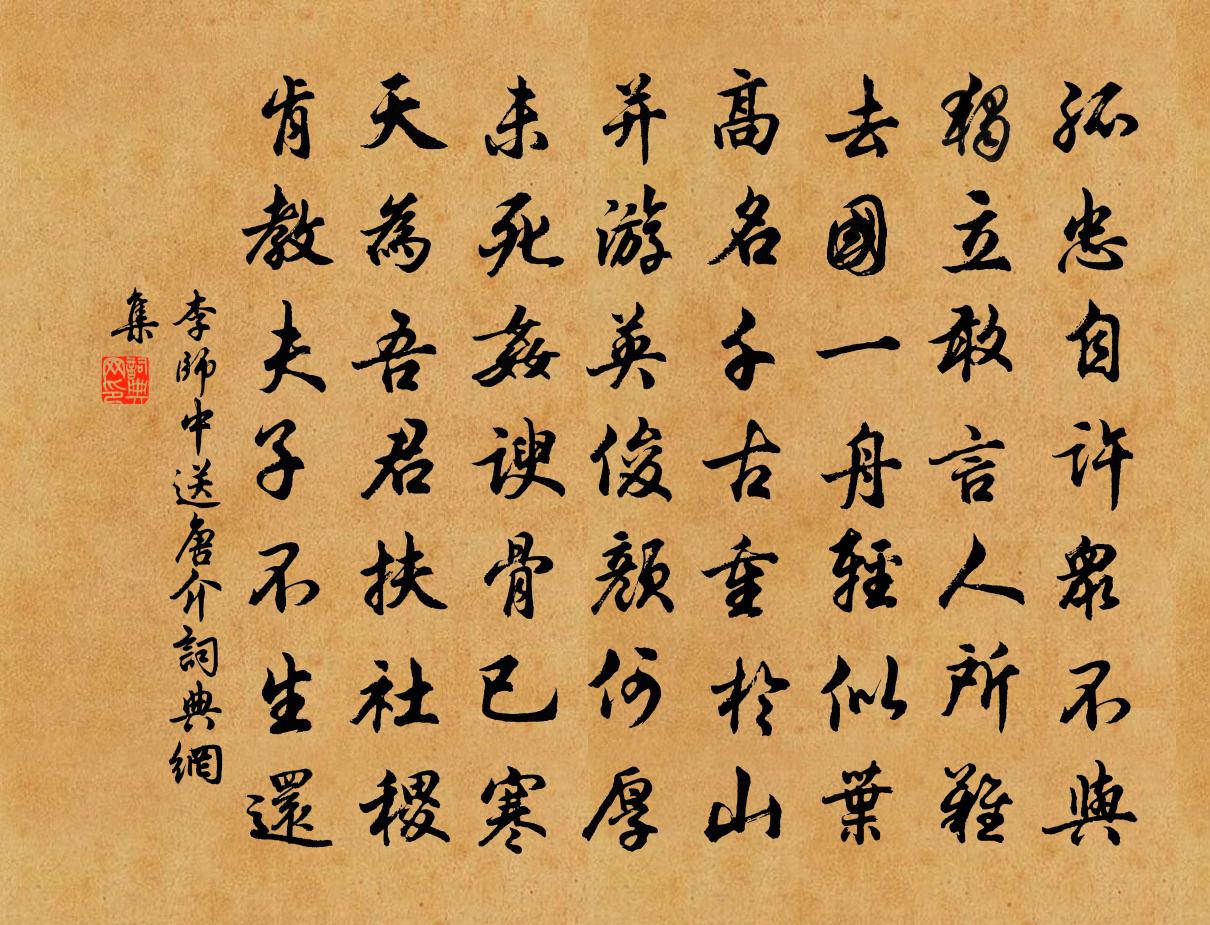 孤忠自許眾不與
獨立敢言人所難
去國一舟輕似葉
高名千古重於山
并游英俊顏何厚
未死姦諛骨已寒
天為吾君扶社稷
肯教夫子不生還
李師中送唐介詞典網
集
詞典
网印